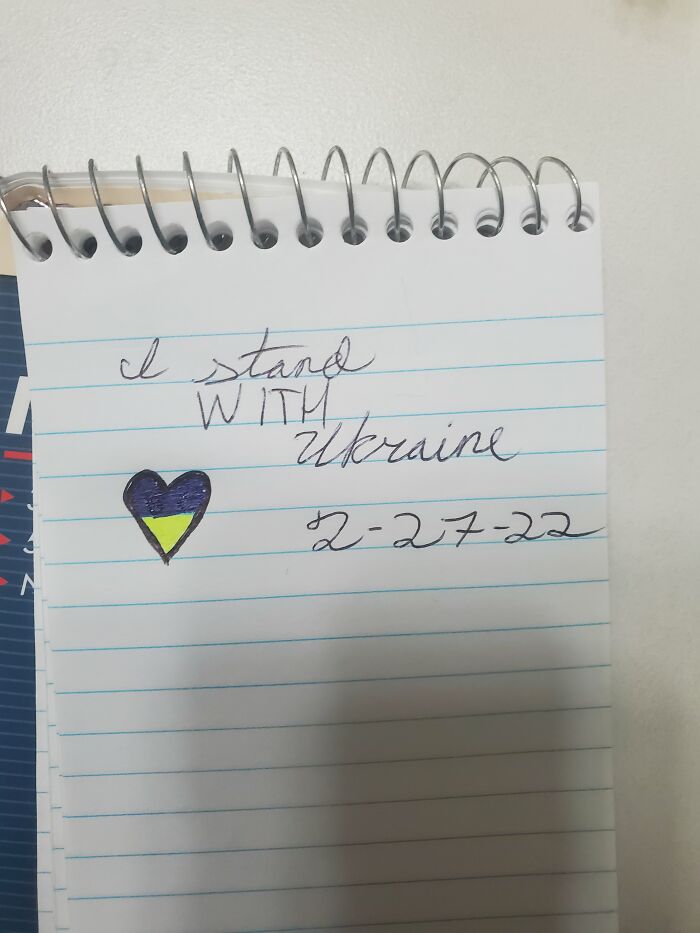 I stand
WITH
Ukraine
2-27-22